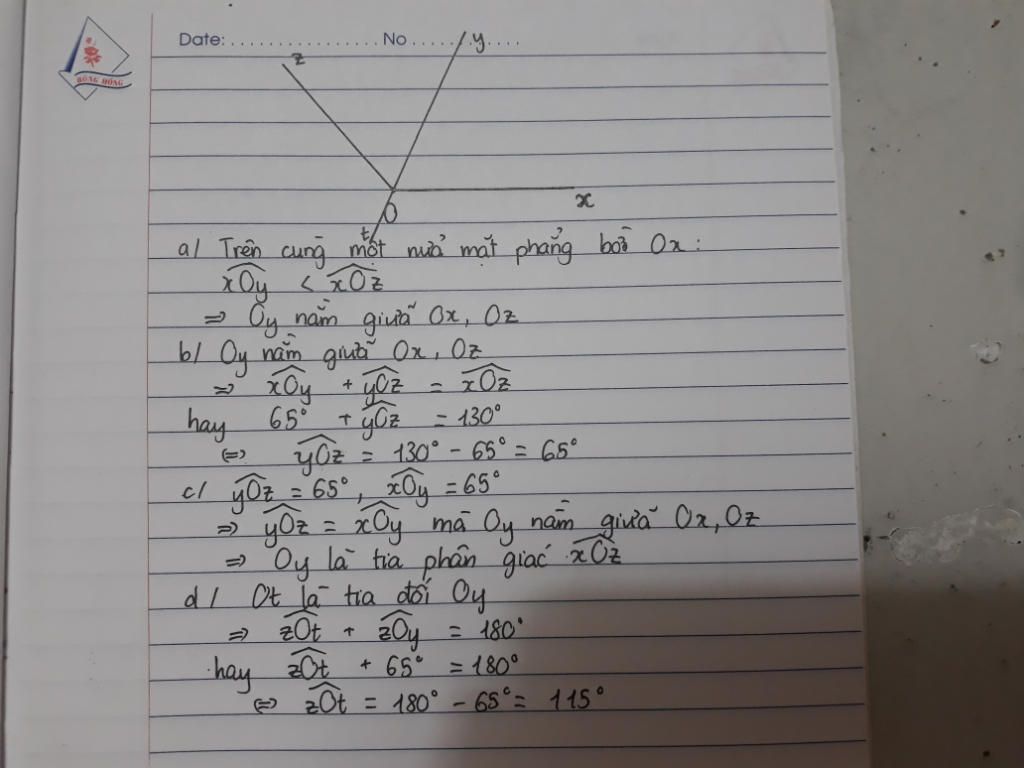 BÔNG HỒNG
Date: ................ No ...............
z
y
O
x
t
a/ Trên cùng một nửa mặt phẳng bờ Ox:
xOy < xOz
⇒ Oy nằm giữa Ox, Oz
b/ Oy nằm giữa Ox, Oz
⇒ xOy + yOz = xOz
hay 65° + yOz = 130°
⇔ yOz = 130° - 65° = 65°
c/ yOz = 65°, xOy = 65°
⇒ yOz = xOy mà Oy nằm giữa Ox, Oz
⇒ Oy là tia phân giác xOz
d/ Ot là tia đối Oy
⇒ zOt + zOy = 180°
hay zOt + 65° = 180°
⇔ zOt = 180° - 65° = 115°